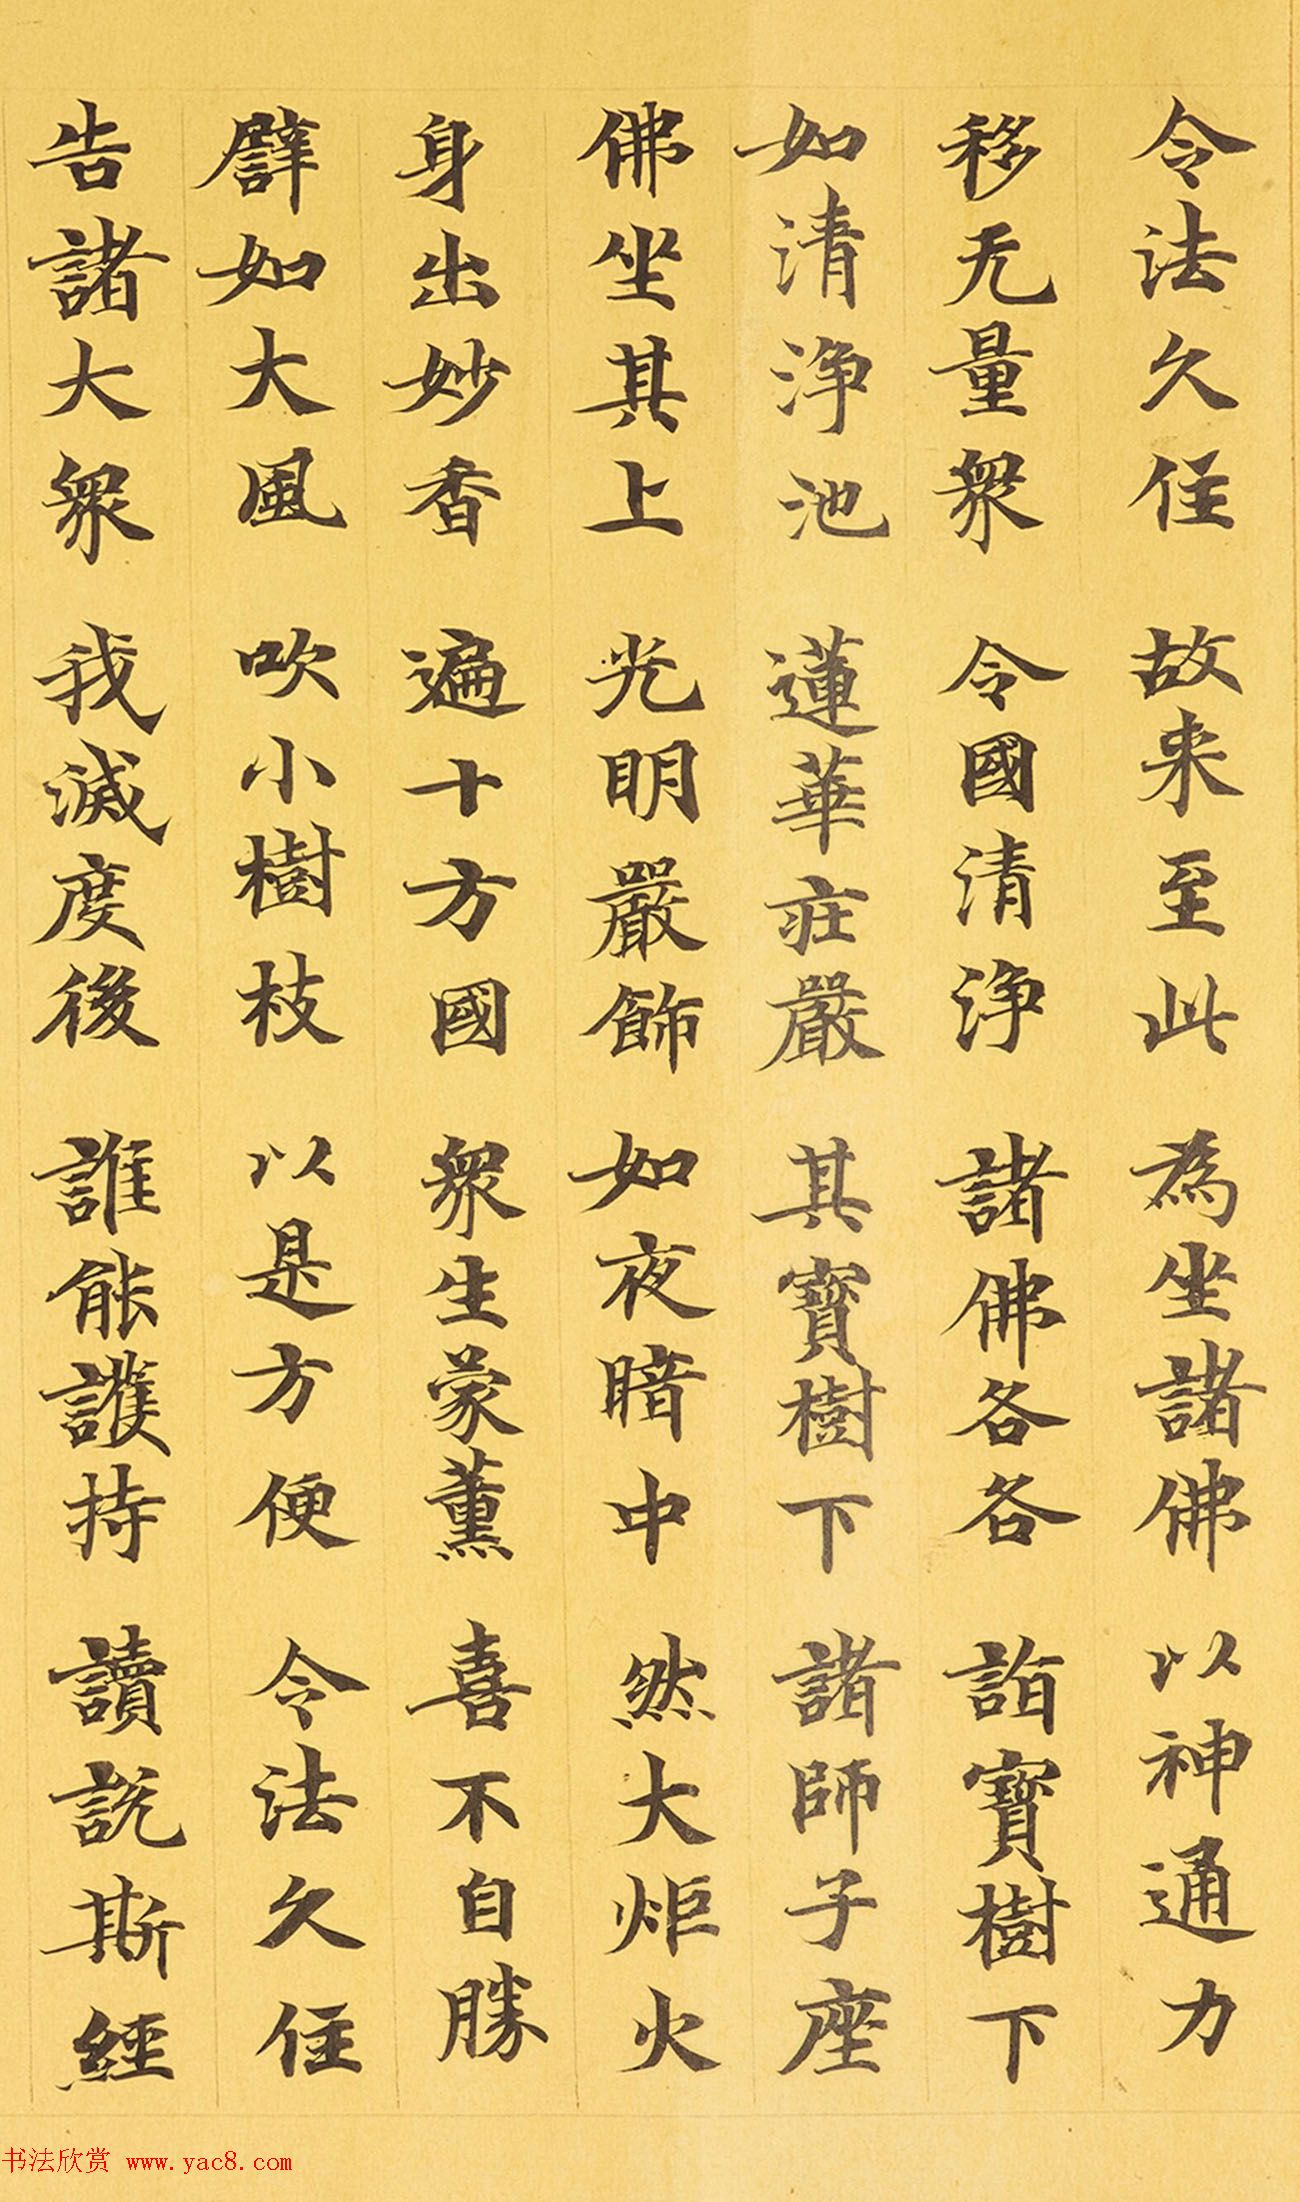 令法久住 故来至此 為坐諸佛 以神通力
移无量衆 令國清淨 諸佛各各 詣寶樹下
如清淨池 蓮華莊嚴 其寶樹下 諸師子座
佛坐其上 光明嚴飾 如夜暗中 然大炬火
身出妙香 遍十方國 衆生蒙薰 喜不自勝
譬如大風 吹小樹枝 以是方便 令法久住
告諸大衆 我滅度後 誰能護持 讀說斯經
书法欣赏 www.yac8.com